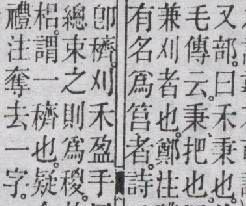 又部曰禾秉也
毛傳云秉把也
兼刈者也鄭注
有名爲筥者詩
卽穧刈禾盈手
總束之則爲稯
梠謂一穧也疑
禮注奪去一字